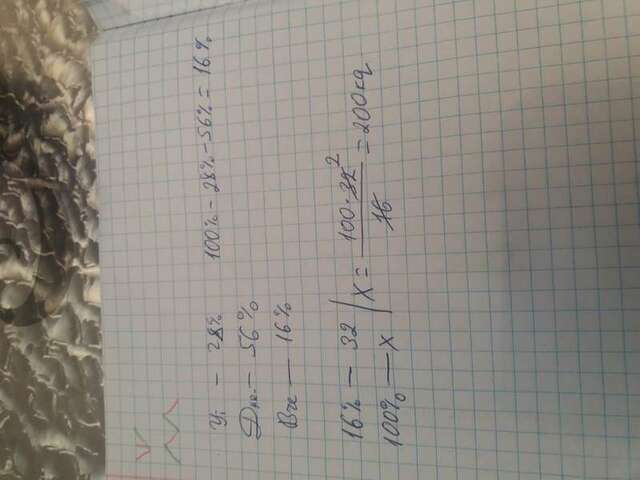 У. - 28% 100% - 28% - 56% = 16%
Дне. - 56%
Веч - 16%
16% - 32
100% - x
x = 100·32 2 / 16 = 200kg